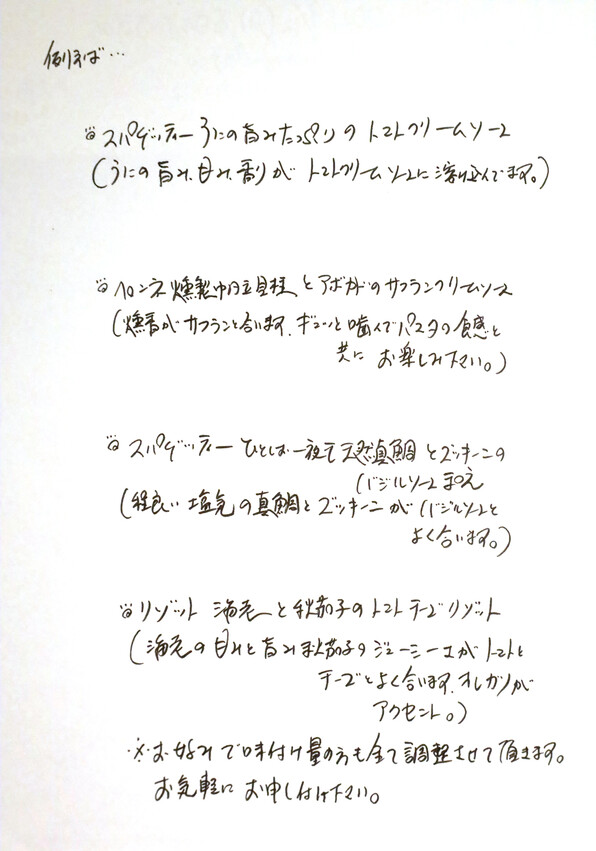 例えば…
スパゲッティー うにの旨みたっぷりの トマトクリームソース
(うにの旨み、甘み、香りが トマトクリームソースに溶け込んでます。)
ペンネ 燻製帆立貝柱とアボカドのサフランクリームソース
(燻香がサフランと合います、ギューッと噛んでパスタの食感と
共に お楽しみ下さい。)
スパゲッティー ひとしお一夜干天然真鯛とズッキーニの
バジルソース和え
(程良い塩気の真鯛とズッキーニがバジルソースと
よく合います。)
リゾット 海老と秋茄子のトマトチーズリゾット
(海老の甘みと旨み秋茄子のジューシーさがトマトと
チーズとよく合います、オレガノが
アクセント。)
※お好みで味付け量の方も全て調整させて頂きます。
お気軽に お申し付け下さい。